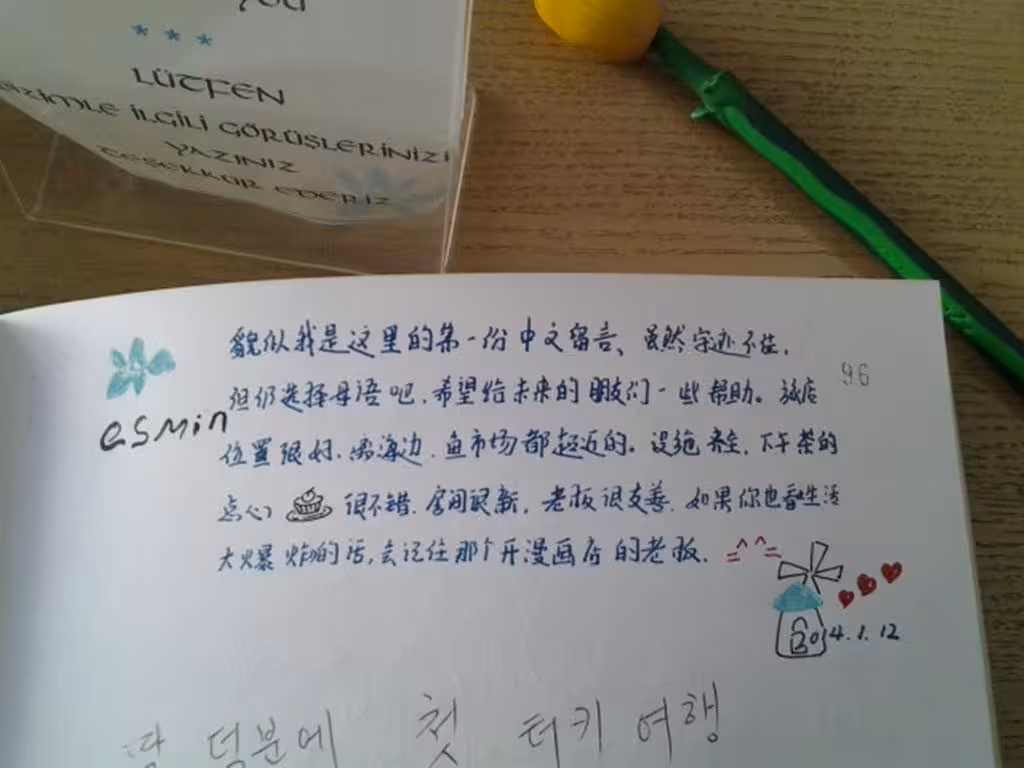 you
* * *
LÜTFEN
BİZİMLE İLGİLİ GÖRÜŞLERİNİZİ
YAZINIZ
TEŞEKKÜR EDERİZ
貌似我是这里的第一份中文留言、虽然字迹不佳,
96
但仍选择母语吧,希望给未来的朋友们一些帮助。旅店
esmin
位置很好、离海边、鱼市场都超近的。设施齐全,下午茶的
点心 很不错,房间很新,老板很友善,如果你也看生活
大爆炸的话,会记住那个开漫画店的老板. =^^=
2014.1.12
덕분에 첫 터키 여행